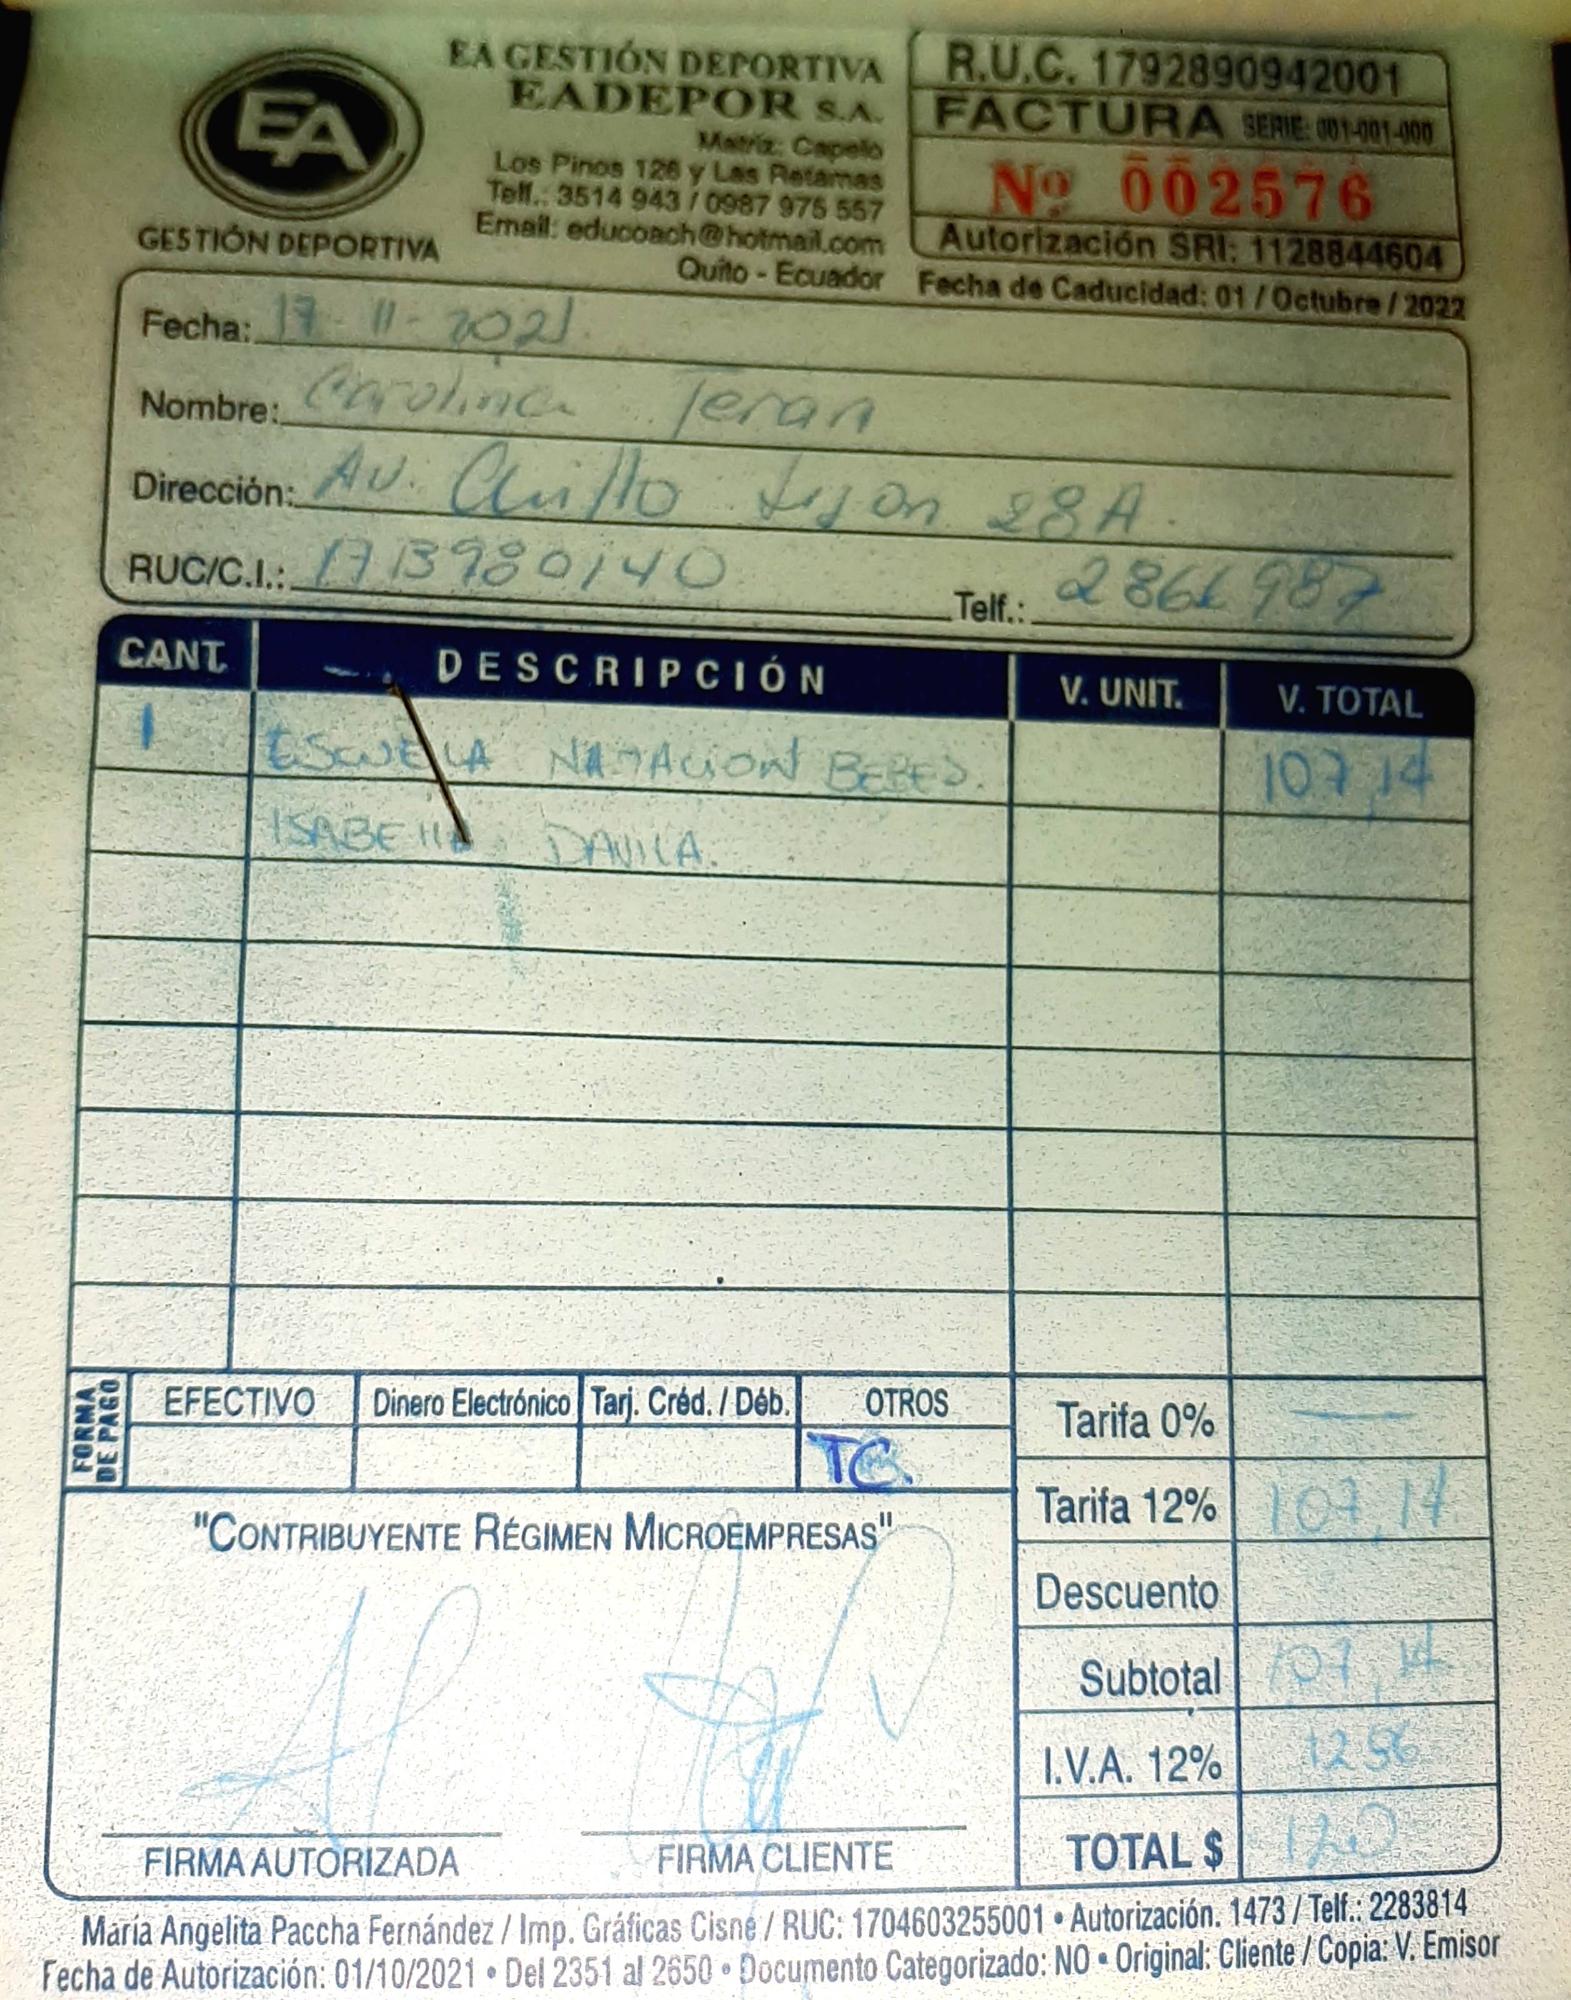 EA
GESTIÓN DEPORTIVA
EA GESTIÓN DEPORTIVA
EADEPOR S.A.
Matriz: Capelo
Los Pinos 126 y Las Retamas
Telf.: 3514 943 / 0987 975 557
Email: educoach@hotmail.com
Quito - Ecuador
R.U.C. 1792890942001
FACTURA SERIE: 001-001-000
Nº 002576
Autorización SRI: 1128844604
Fecha de Caducidad: 01 / Octubre / 2022
Fecha: 17-11-2021
Nombre: Carolina Teran
Dirección: Av. 28A
RUC/C.I.: 1713980140 Telf.:
CANT. DESCRIPCIÓN V. UNIT. V. TOTAL
1 ESCUELA NATACION BEBES. 107,14
ISABEllA DAVILA.
FORMA DE PAGO
EFECTIVO Dinero Electrónico Tarj. Créd. / Déb. OTROS
TC.
Tarifa 0% —
Tarifa 12% 107,14
Descuento
Subtotal 107,14
I.V.A. 12% 12 86
TOTAL $ 120
"CONTRIBUYENTE RÉGIMEN MICROEMPRESAS"
FIRMA AUTORIZADA FIRMA CLIENTE
María Angelita Paccha Fernández / Imp. Gráficas Cisne / RUC: 1704603255001 • Autorización. 1473 / Telf.: 2283814
Fecha de Autorización: 01/10/2021 • Del 2351 al 2650 • Documento Categorizado: NO • Original: Cliente / Copia: V. Emisor